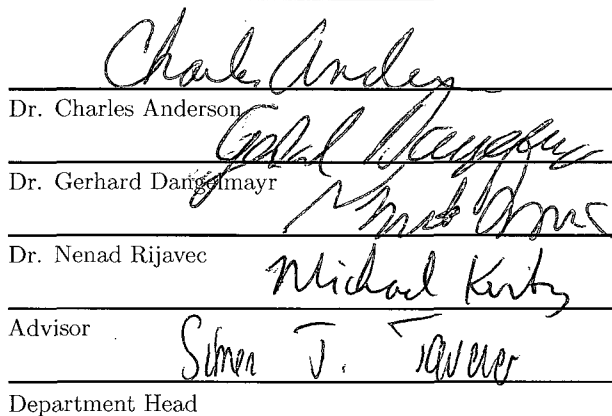 Charles Anderson
Dr. Charles Anderson
Gerhard Dangelmayr
Dr. Gerhard Dangelmayr
Dr. Nenad Rijavec
Michael Kirby
Advisor
Simon J. Tavener
Department Head